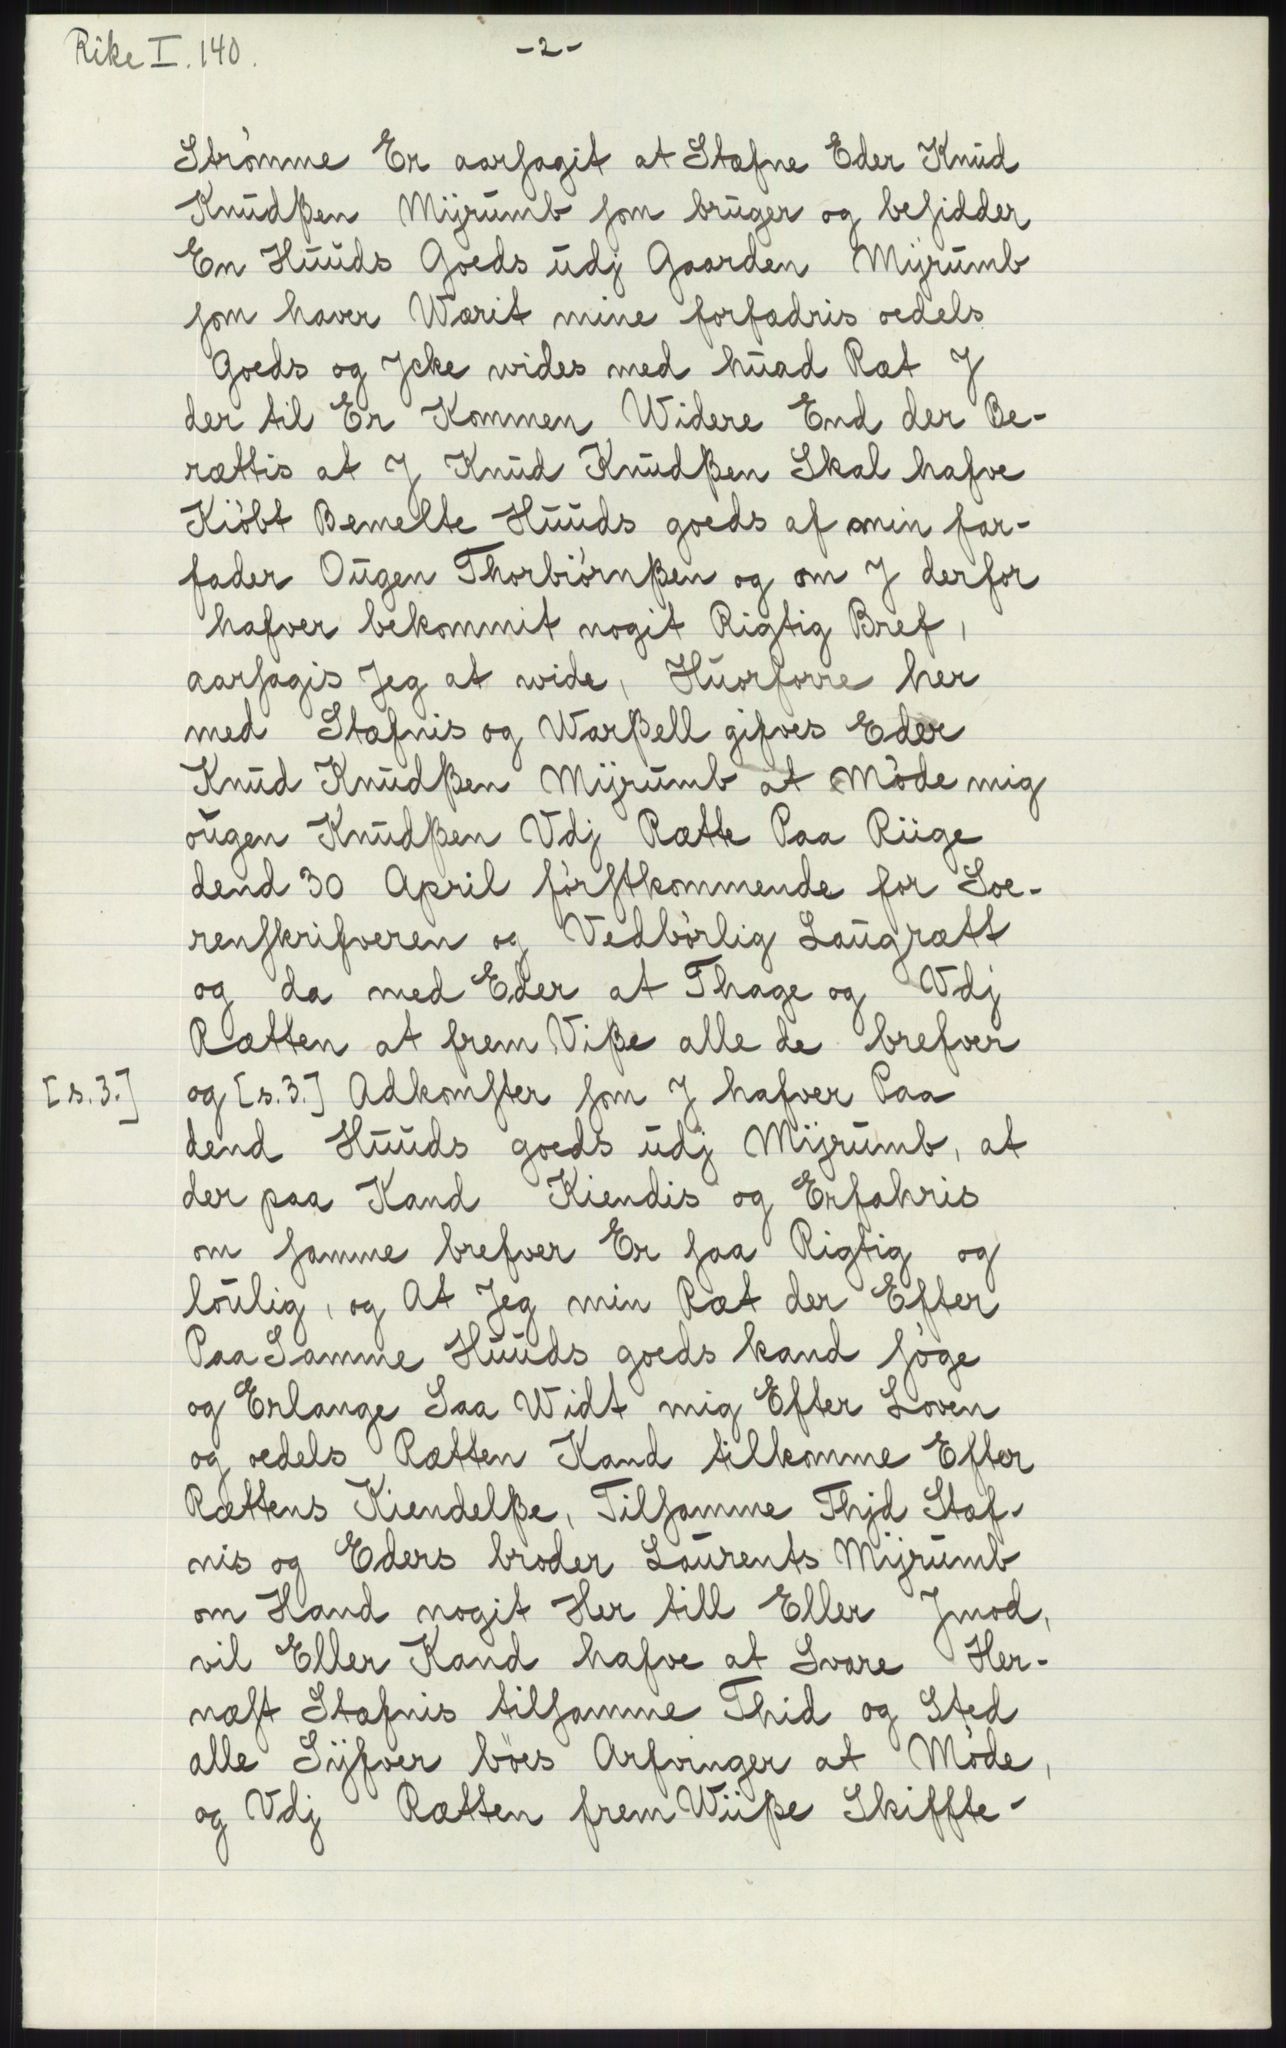 Rike I. 140.
-2-
Strømme Er aarsagit at Stæfne Eder Knud
Knudßen Mÿrumb som bruger og besidder
En Huuds Goeds udj Gaarden Mÿrumb
som haver Wærit mine forfædris oedels
Goeds og Jcke wides med huad Ræt J
der til Er Kommen Widere End der Be-
rættis at J Knud Knudßen Skal hafve
Kiøbt Bemelte Huuds goeds af min far-
fader Ougen Thorbiørnßen og om J derfor
hafver bekommit nogit Rigtig Bref,
aarsagis Jeg at wide, Huorforre her
med Stæfnis og Warßell gifves Eder
Knud Knudßen Mÿrumb at Møde mig
ougen Knudßen Vdj Rætte Paa Riige
dend 30 April førstkommende for Soe-
renskrifveren og Vedbørlig Laugrætt
og da med Eder at Thage og Vdj
Rætten at frem Viße alle de brefver
[s.3.] og [s.3.] Adkomster som J hafver Paa
dend Huuds goeds udj Mÿrumb, at
der paa Kand Kiendis og Erfahris
om samme brefver Er saa Rigtig og
loulig, og At Jeg min Ræt der Efter
Paa Samme Huuds goeds kand søge
og Erlange Saa Widt mig Efter Loven
og oedels Rætten Kand tilkomme Efter
Rættens Kiendelße, Tilsamme Thjd Stæf-
nis og Eders broder Laurents Mÿrumb
om Hand nogit Her till Eller Jmod,
vil Eller Kand hafve at Svare Her-
næst Stæfnis tilsamme Thid og Sted
alle Sÿfver bøes Arfvinger at Møde,
og Vdj Rætten frem Wiiße Skiffte-